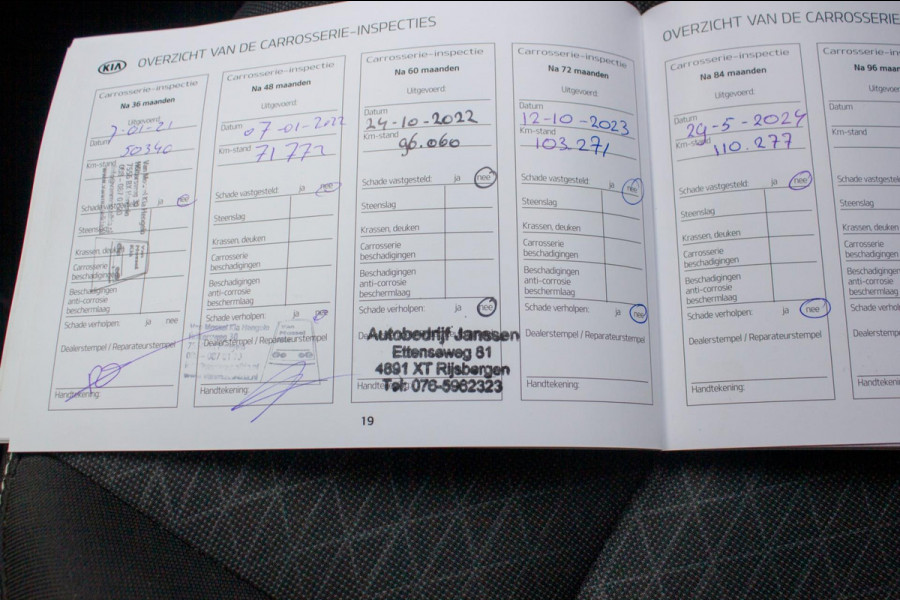 KIA OVERZICHT VAN DE CARROSSERIE-INSPECTIES
Carrosserie-inspectie
Na 36 maanden
Uitgevoerd:
Datum 7-01-21
Km-stand 50340
Schade vastgesteld: ja nee
Steenslag
Krassen, deuken
Carrosserie
beschadigingen
Beschadigingen
anti-corrosie
beschermlaag
Schade verholpen: ja nee
Dealerstempel / Reparateurstempel
Handtekening:
Carrosserie-inspectie
Na 48 maanden
Uitgevoerd:
Datum 07-01-2022
Km-stand 71 772
Schade vastgesteld: ja nee
Steenslag
Krassen, deuken
Carrosserie
beschadigingen
Beschadigingen
anti-corrosie
beschermlaag
Schade verholpen: ja nee
Dealerstempel / Reparateurstempel
Handtekening:
Carrosserie-inspectie
Na 60 maanden
Uitgevoerd:
Datum
24-10-2022
Km-stand
96.060
Schade vastgesteld: ja nee
Steenslag
Krassen, deuken
Carrosserie
beschadigingen
Beschadigingen
anti-corrosie
beschermlaag
Schade verholpen: ja nee
Autobedrijf Janssen
Ettenseweg 81
4891 XT Rijsbergen
Tel: 076-5962323
Carrosserie-inspectie
Na 72 maanden
Uitgevoerd:
Datum
12-10-2023
Km-stand
103.271
Schade vastgesteld: ja nee
Steenslag
Krassen, deuken
Carrosserie
beschadigingen
Beschadigingen
anti-corrosie
beschermlaag
Schade verholpen: ja nee
Dealerstempel / Reparateurstempel
Handtekening:
19
OVERZICHT VAN DE CARROSSERIE
Carrosserie-inspectie
Na 84 maanden
Uitgevoerd:
Datum
29-5-2024
Km-stand
110.277
Schade vastgesteld: ja nee
Steenslag
Krassen, deuken
Carrosserie
beschadigingen
Beschadigingen
anti-corrosie
beschermlaag
Schade verholpen: ja nee
Dealerstempel / Reparateurstempel
Handtekening:
Carrosserie-in
Na 96 maan
Uitgevoer
Datum
Km-stand
Schade vastgesteld:
Steenslag
Krassen, deuken
Carrosserie
beschadigingen
Beschadigingen
anti-corrosie
beschermlaag
Schade verholpen:
Dealerstempel / Rep
Handtekening: